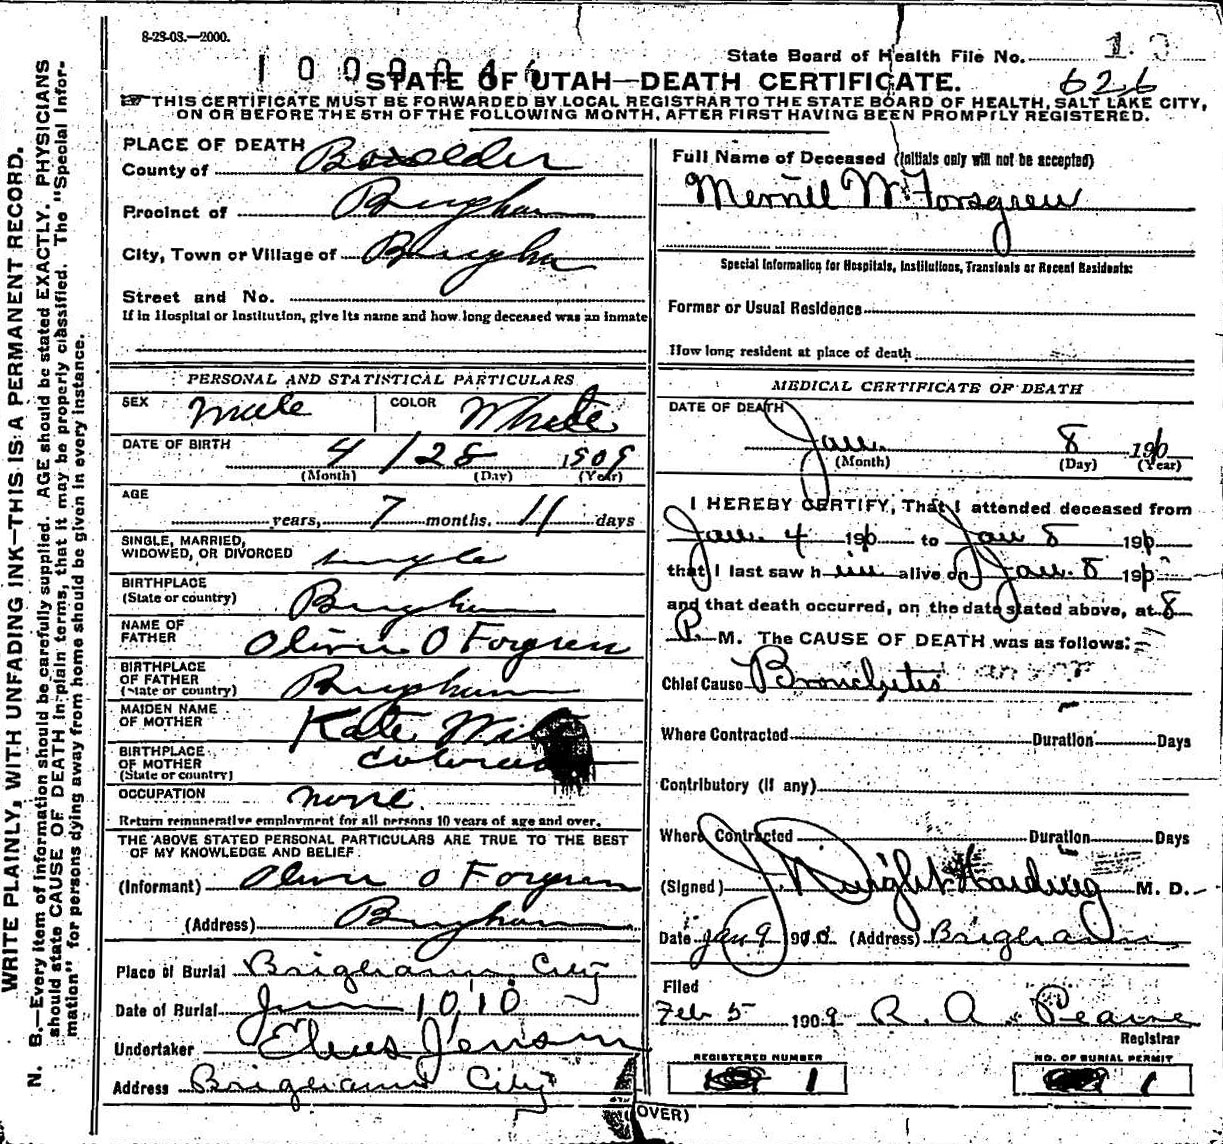 8-23-03.—2000.
State Board of Health File No. 13
1000046
626
STATE OF UTAH—DEATH CERTIFICATE.
THIS CERTIFICATE MUST BE FORWARDED BY LOCAL REGISTRAR TO THE STATE BOARD OF HEALTH, SALT LAKE CITY,
ON OR BEFORE THE 5TH OF THE FOLLOWING MONTH, AFTER FIRST HAVING BEEN PROMPTLY REGISTERED.
WRITE PLAINLY, WITH UNFADING INK—THIS IS A PERMANENT RECORD.
N. B.—Every item of information should be carefully supplied. AGE should be stated EXACTLY. PHYSICIANS
should state CAUSE OF DEATH in plain terms, that it may be properly classified. The "Special Infor-
mation" for persons dying away from home should be given in every instance.
PLACE OF DEATH
County of Boxelder
Precinct of Brigham
City, Town or Village of Brigham
Street and No.
If in Hospital or Institution, give its name and how long deceased was an inmate
PERSONAL AND STATISTICAL PARTICULARS
SEX male COLOR White
DATE OF BIRTH 4 / 28 1909
(Month) (Day) (Year)
AGE
years, 7 months. 11 days
SINGLE, MARRIED,
WIDOWED, OR DIVORCED single
BIRTHPLACE
(State or country) Brigham
NAME OF
FATHER Olivir O Forgren
BIRTHPLACE
OF FATHER
(State or country) Brigham
MAIDEN NAME
OF MOTHER Kate
BIRTHPLACE
OF MOTHER
(State or country)
OCCUPATION none.
Return remunerative employment for all persons 10 years of age and over.
THE ABOVE STATED PERSONAL PARTICULARS ARE TRUE TO THE BEST
OF MY KNOWLEDGE AND BELIEF:
(Informant) Olivir O Forgren
(Address) Brigham
Place of Burial Brigham City
Date of Burial Jan 10, 10
Undertaker Elias Jensen
Address Brigham City
Full Name of Deceased (Initials only will not be accepted)
Merrill W. Forsgren
Special Information for Hospitals, Institutions, Transients or Recent Residents:
Former or Usual Residence
How long resident at place of death
MEDICAL CERTIFICATE OF DEATH
DATE OF DEATH
Jan. 8 1910
(Month) (Day) (Year)
I HEREBY CERTIFY, That I attended deceased from
Jan. 4 1910 to Jan 8 1910
that I last saw him alive on Jan. 8 1910
and that death occurred, on the date stated above, at 8
P. M. The CAUSE OF DEATH was as follows:
Chief Cause Bronchitis
Where Contracted Duration Days
Contributory (if any)
Where Contracted Duration Days
(Signed) J Dwight Harding M. D.
Date Jan 9 1910 (Address) Brigham
Filed
Feb 5 1909 R. A. Pearse
Registrar
REGISTERED NUMBER
1
NO. OF BURIAL PERMIT
1
(OVER)